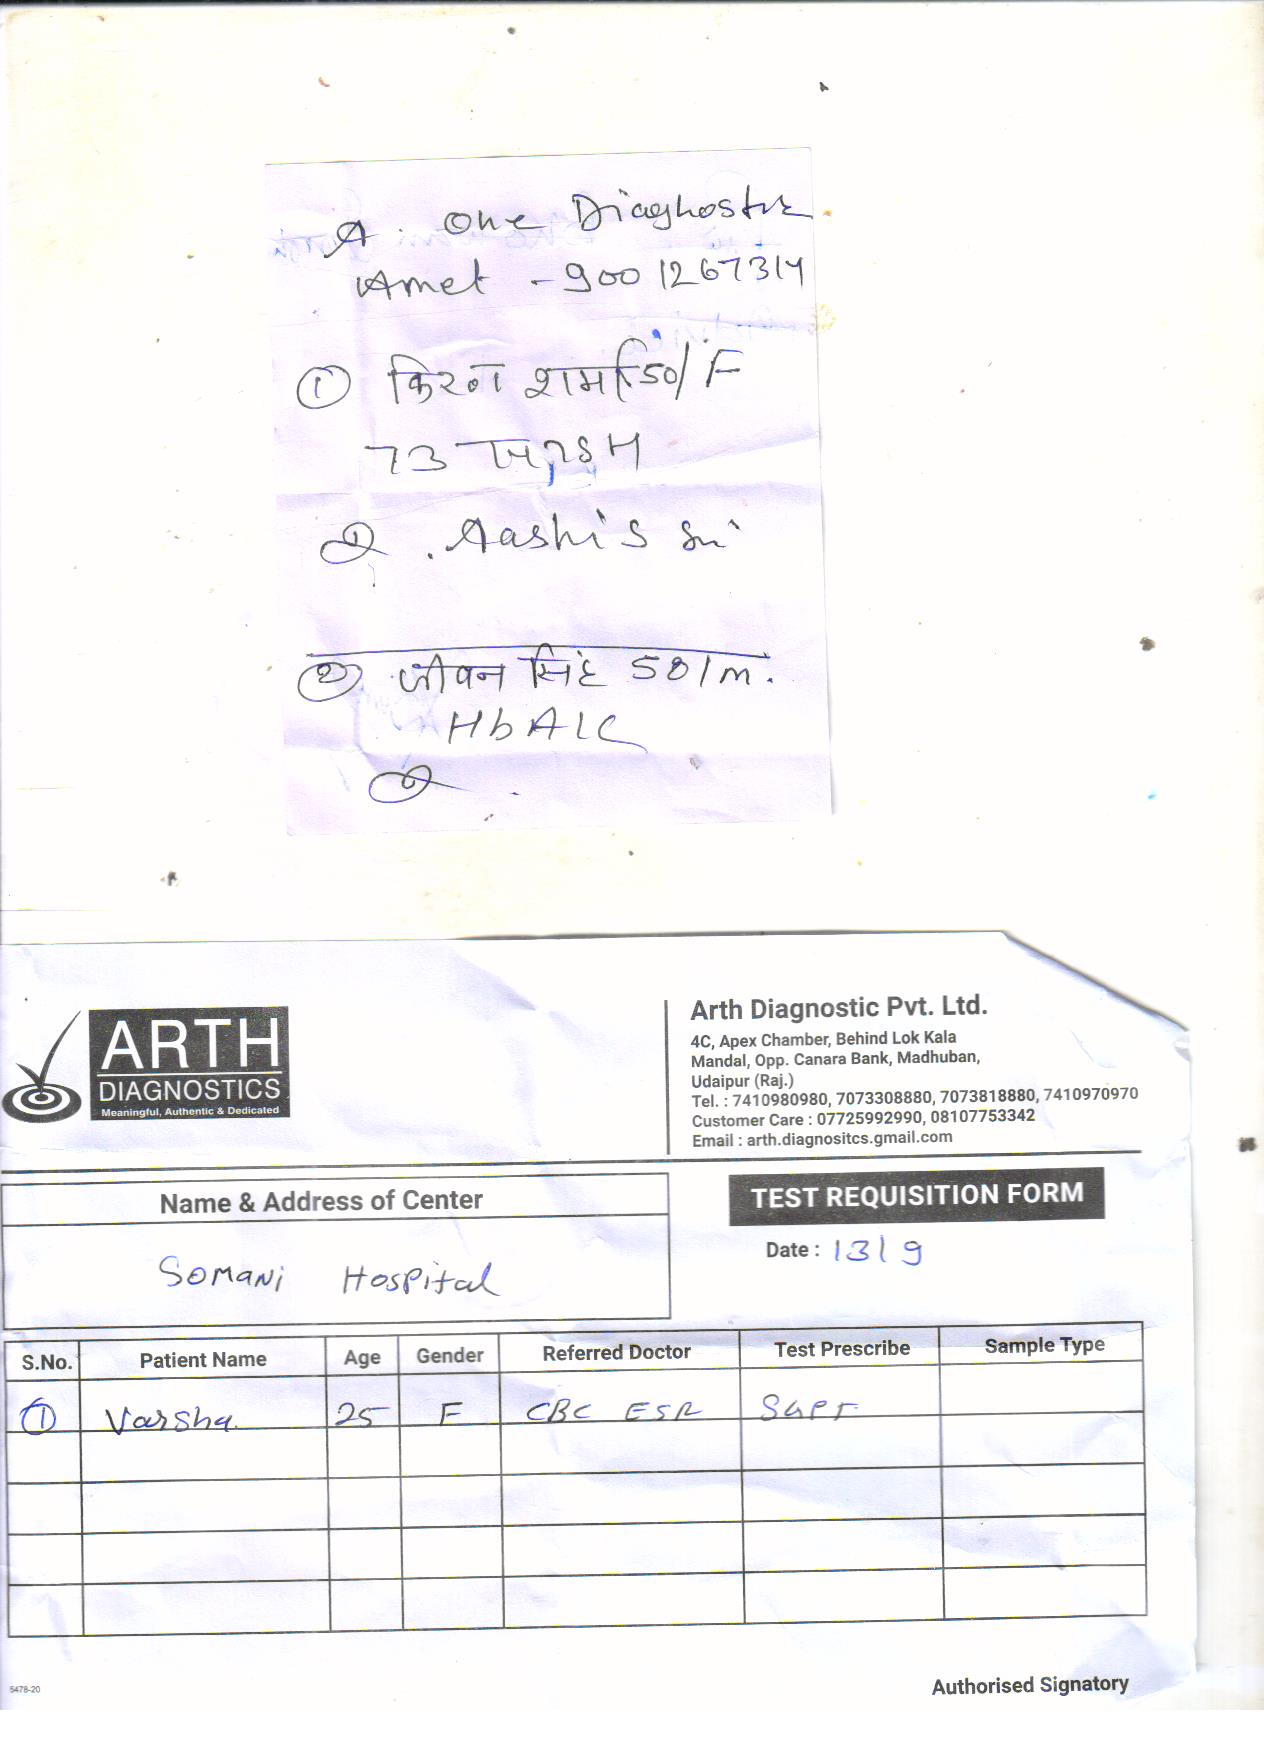 A. One Diagnostic
Amet - 9001267314
① किरन शर्मा 50/F
73
①. Aashis
② जीवन सिंह 58/m.
HbA1C
ARTH
DIAGNOSTICS
Meaningful, Authentic & Dedicated
Arth Diagnostic Pvt. Ltd.
4C, Apex Chamber, Behind Lok Kala
Mandal, Opp. Canara Bank, Madhuban,
Udaipur (Raj.)
Tel. : 7410980980, 7073308880, 7073818880, 7410970970
Customer Care : 07725992990, 08107753342
Email : arth.diagnositcs.gmail.com
Name & Address of Center
TEST REQUISITION FORM
Somani Hospital
Date : 13/9
S.No. Patient Name Age Gender Referred Doctor Test Prescribe Sample Type
① Varsha 25 F CBC ESR SGPT
5478-20
Authorised Signatory